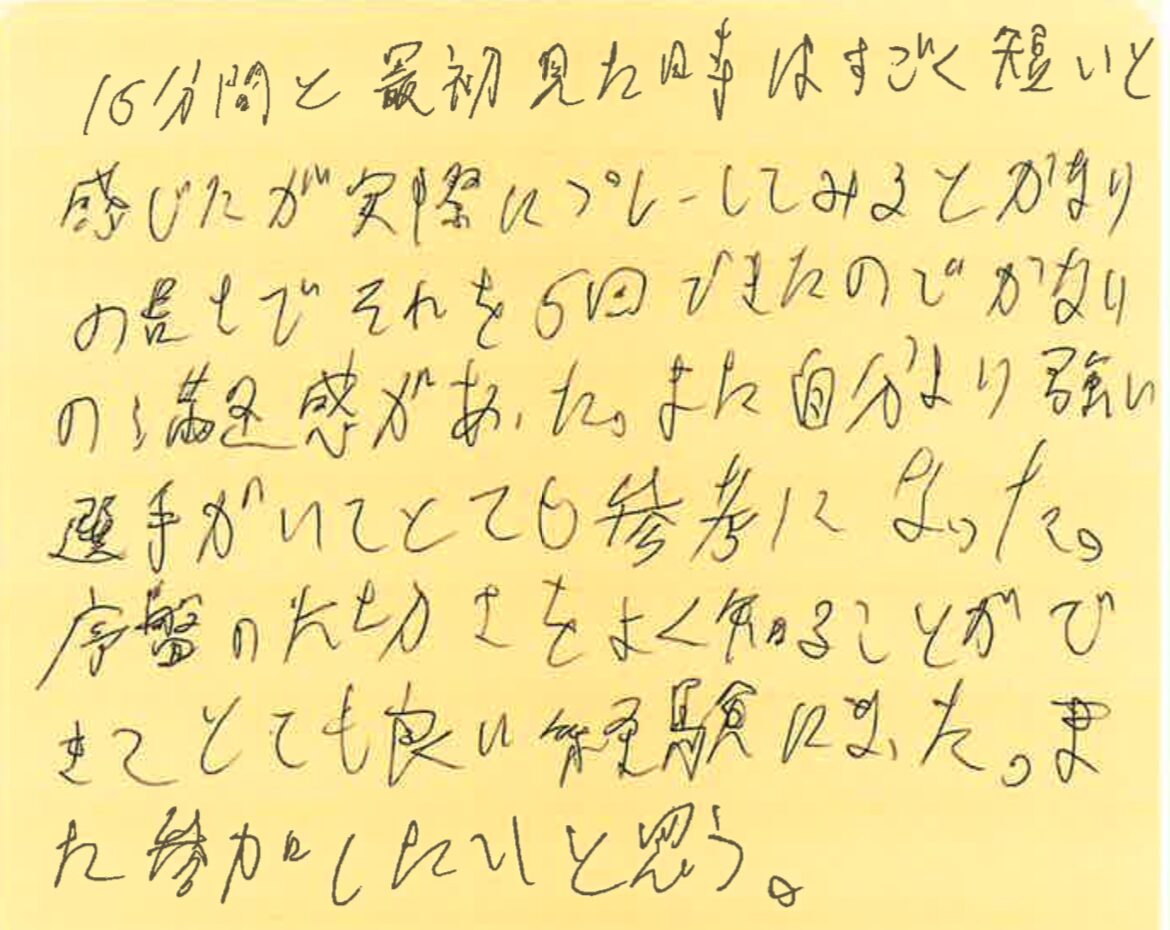 15分間と最初見た時はすごく短いと
感じたが実際にプレーしてみるとかなり
の長さでそれを5回できたのでかなり
の満足感があった。また自分より強い
選手がいてとても参考になった。
序盤の大切さをよく知ることがで
きてとても良い経験になった。ま
た参加したいと思う。